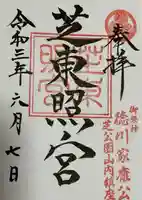 奉拝
御祭神
徳川家康公
芝公園山内鎮座
芝東照宮
令和三年六月七日